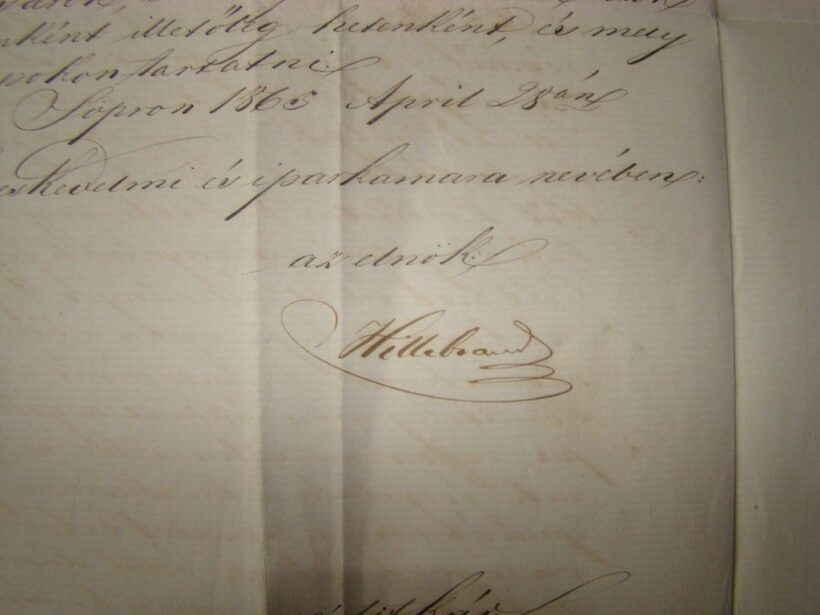 nként illetőleg hetenként, és mely
pokon tartatni.
Sopron 1865 April 28án
eskedelmi és iparkamara nevében:
az elnök:
Hillebrand